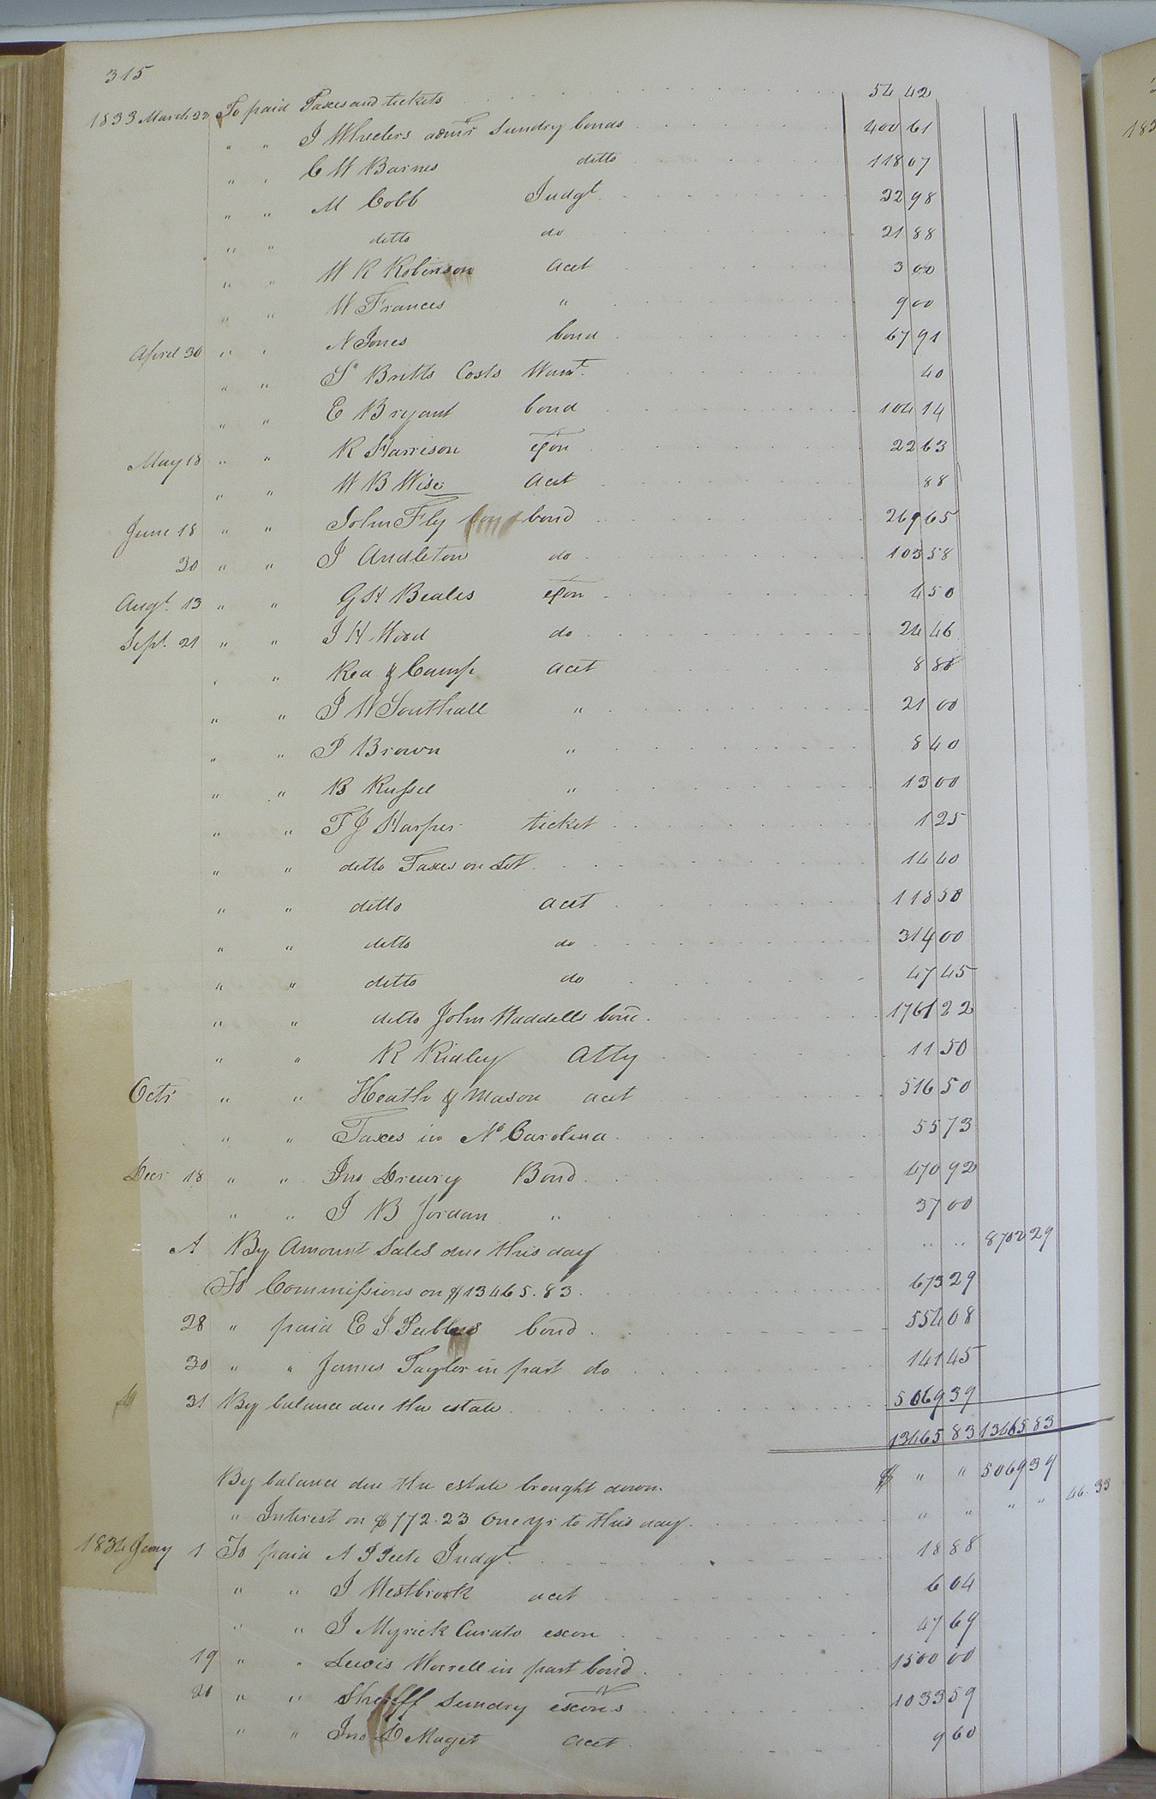 315
1833 March 22 To paid Taxes and tickets 54 42
" " J Wheelers admr Sundry bonds 400 61
" " C W Barnes ditto 118 07
" " M Cobb Judgt 32 98
" " ditto do 21 88
" " W R Robinson acct 3 00
" " W Frances " 9 00
April 30 " " N Jones bond 67 91
" " Britts Costs Warrt. 40
" " E Bryant bond 104 14
May 18 " " R Harrison exon 22 63
" " W B Wise acct 88
June 18 " " John Fly bond 269 65
20 " " J Andleton do 103 58
Augt. 13 " " G H Beales exon 4 50
Sept. 21 " " J H Wood do 24 46
" " Rea & Camp acct 8 88
" " J W Southall " 21 00
" " J Brown " 8 40
" " B Russel " 13 00
" " T J Harper ticket 1 25
" " ditto Taxes on 14 40
" " ditto acct 118 50
" " ditto do 314 00
" " ditto do 47 45
" " ditto John Waddells bond 1761 22
" " R Ridley Atty 11 50
Octr " " Heath & Mason acct 516 50
" " Taxes in No Carolina 55 73
Decr 18 " " Jno Drewry Bond 470 92
" " J B Jordan " 37 00
A By Amount Sales due this day " " 8702 29
To Commissions on $13465.83 673 29
28 " paid E J Peebles bond 554 08
30 " " James Taylor in part do 141 45
31 By balance due the estate 5069 39
13465 83 13465 83
By balance due the estate brought down $ " " 5069 39
" Interest on $772.23 One yr to this day " " " " 46.33
1834 Jany 1 To paid A J Peete Judgt. 18 88
" " J Westbrook acct 6 04
" " J Myrick Curato excon 47 69
19 " " Lewis Worrell in part bond 1500 00
20 " " Sheriff Sundry excons 1033 59
" " Jno D Maget acct 9 60